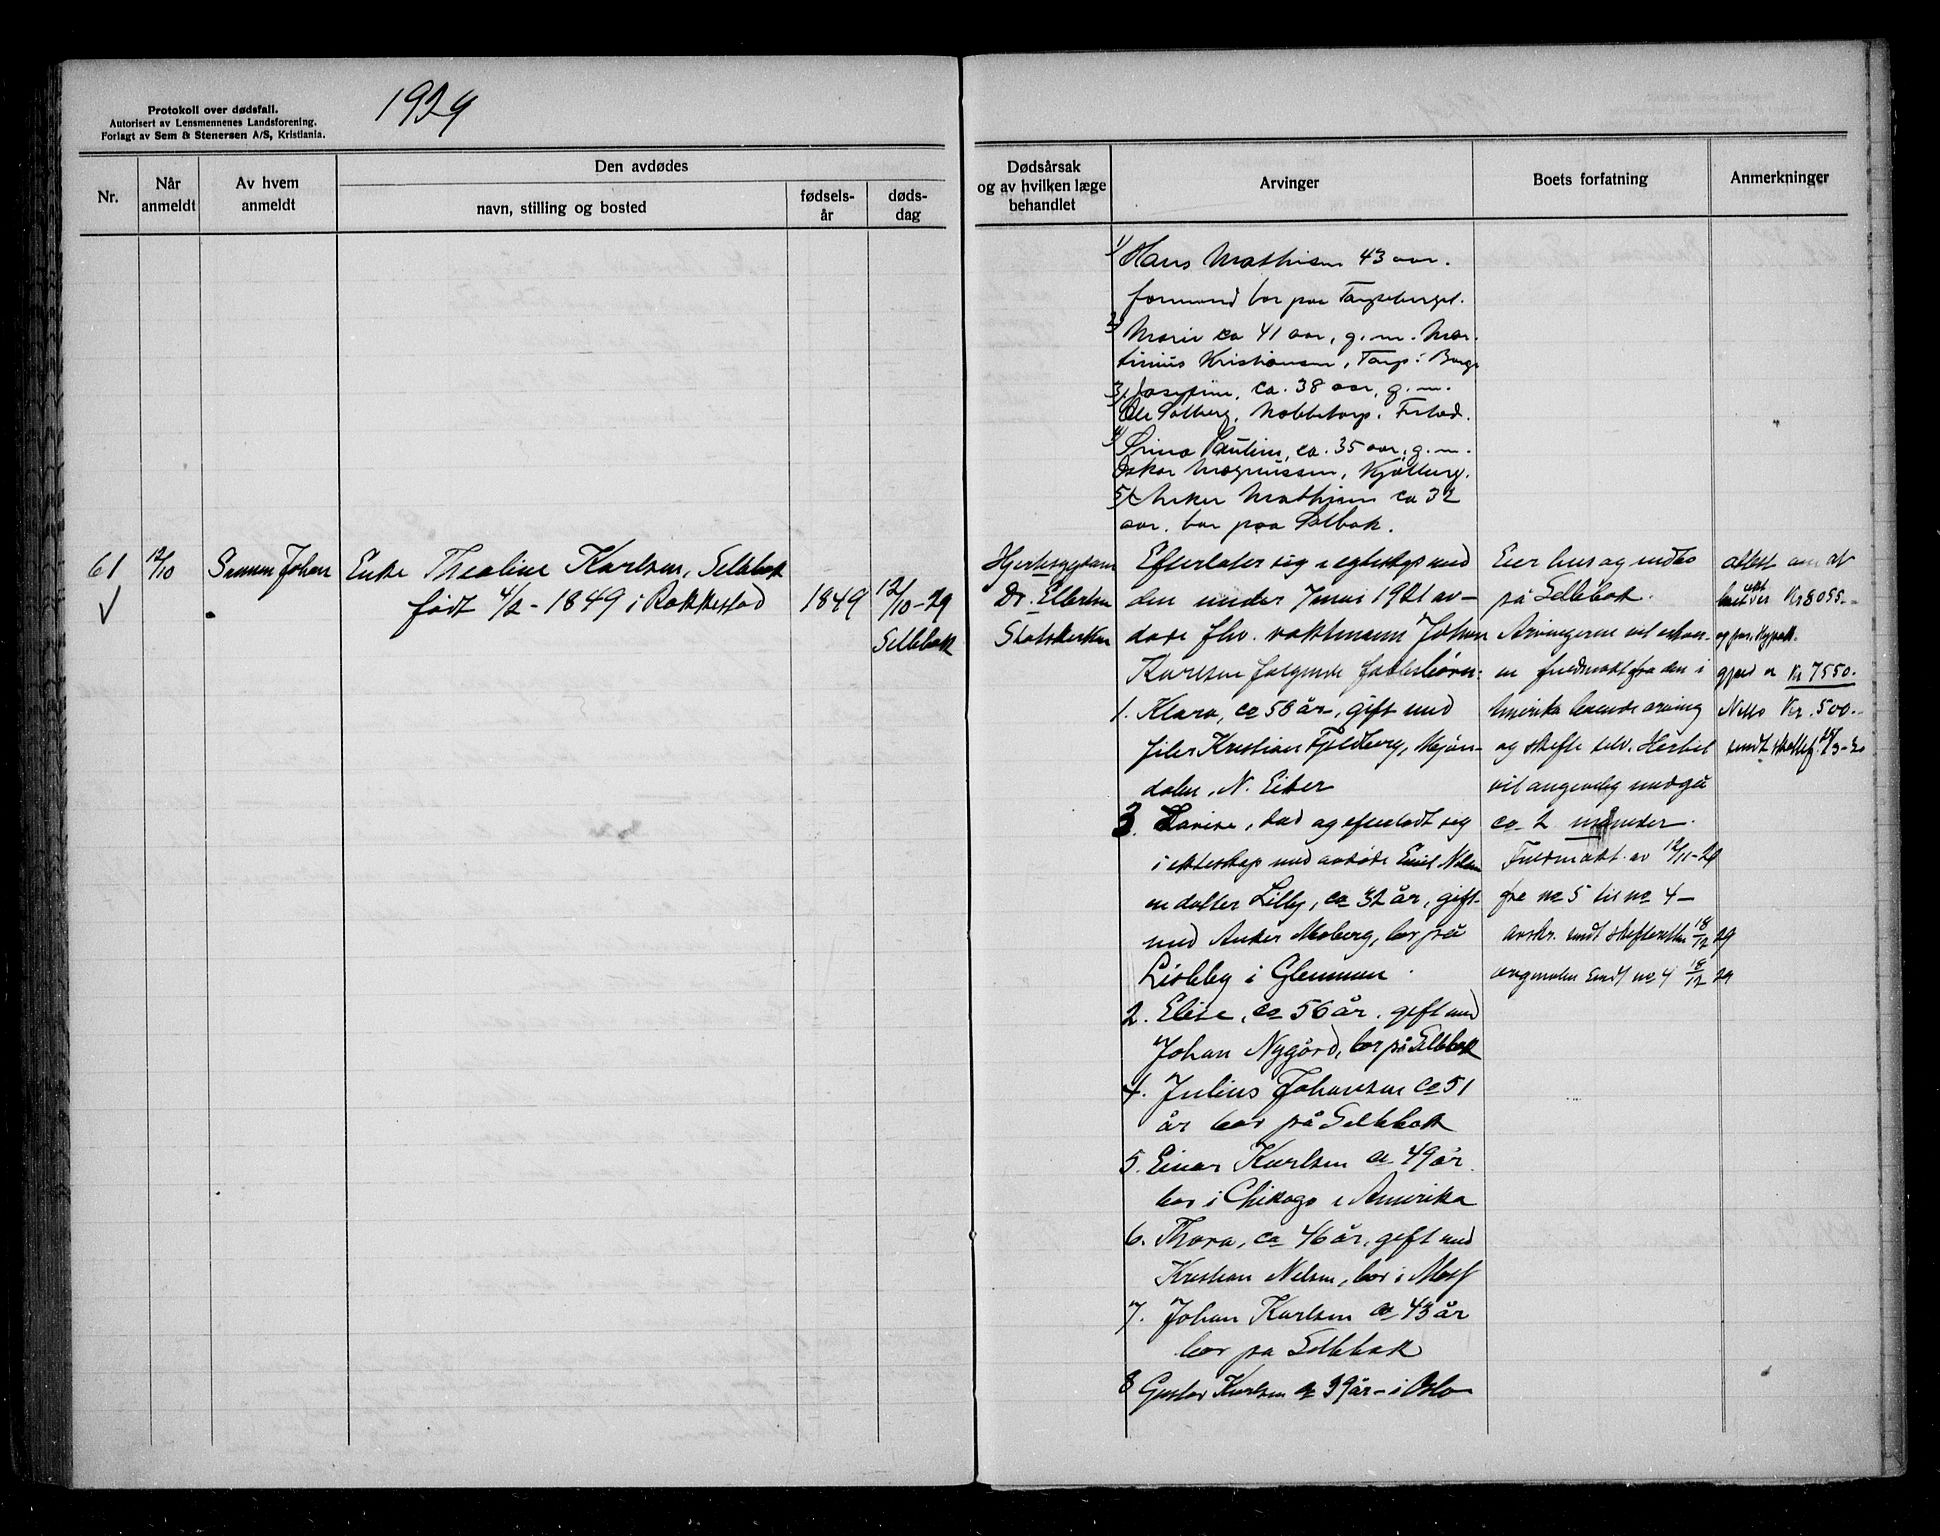 1929
Protokoll over dødsfall.
Autorisert av Lensmennenes Landsforening.
Forlagt av Sem & Stenersen A/S, Kristiania.
Nr.
Når anmeldt
Av hvem anmeldt
Den avdødes
navn, stilling og bosted
fødsels-år
døds-dag
Dødsårsak
og av hvilken læge
behandlet
Arvinger
Boets forfatning
Anmerkninger
1/ Hans Mathisen 43 aar.
formand bor paa
2/ Marie ca 41 aar, g.m. Mar-
tinius Kristiansen, Torp i Borge
3/ Josefine, ca. 38 aar, g.m.
Ole Solberg, Nabbetorp i
4/ Paulina, ca. 35 aar, g.m.
Oskar Magnussen, Kjølberg.
5/ Anker Mathisen ca 32
aar. bor paa Selbak.
61
12/10
Sønnen Johan
Enke Thealine Karlsen, Sellebak
født 4/2 - 1849 i Rakkestad
1849
12/10-29
Sellebak
Hjertesygdom
Dr. Ellertsen
Statskirken
Efterlater sig i egteskap med
den under 7 mai 1921 av-
døde fhv. vaktmann Johan
Karlsen følgende fællesbørn:
1. Klara, ca 58 år, gift med
Kristian Fjeldberg, Mjøn-
dalen, N. Eiker
3. Lovise, død og efterlodt sig
i ekteskap med avdøde Emil
en datter Lilly, ca 32 år, gift
med Anker Moberg, bor på
Lisleby i Glemmen.
2. Elise, ca 56 år, gift med
Johan Nygård, bor på Sellebak
4. Julius Johansen ca 51
år bor på Sellebak
5. Einar Karlsen ca 49 år
bor i Chikago i Amerika
6. Thora, ca 46 år, gift med
Kristian Nilsen, bor i Moss
7. Johan Karlsen ca 43 år
bor på Sellebak
8 Gustav Karlsen ca 39 år - i Oslo
Eier hus og
på Sellebak.
Arvingerne vil
en fuldmakt fra den i
Amerika boende arving
og skifte selv. Hertil
vil angivelig medgå
ca 2 måneder.
Fuldmakt av 12/11-29
fra no 5 til no 4 -
avskr. sendt skifteretten 18/12 29
originalen sendt no 4 18/12 29
attest om at
boet er Kr 8055.-
gjæld er Kr 7550.-
Netto Kr. 500.-
sendt